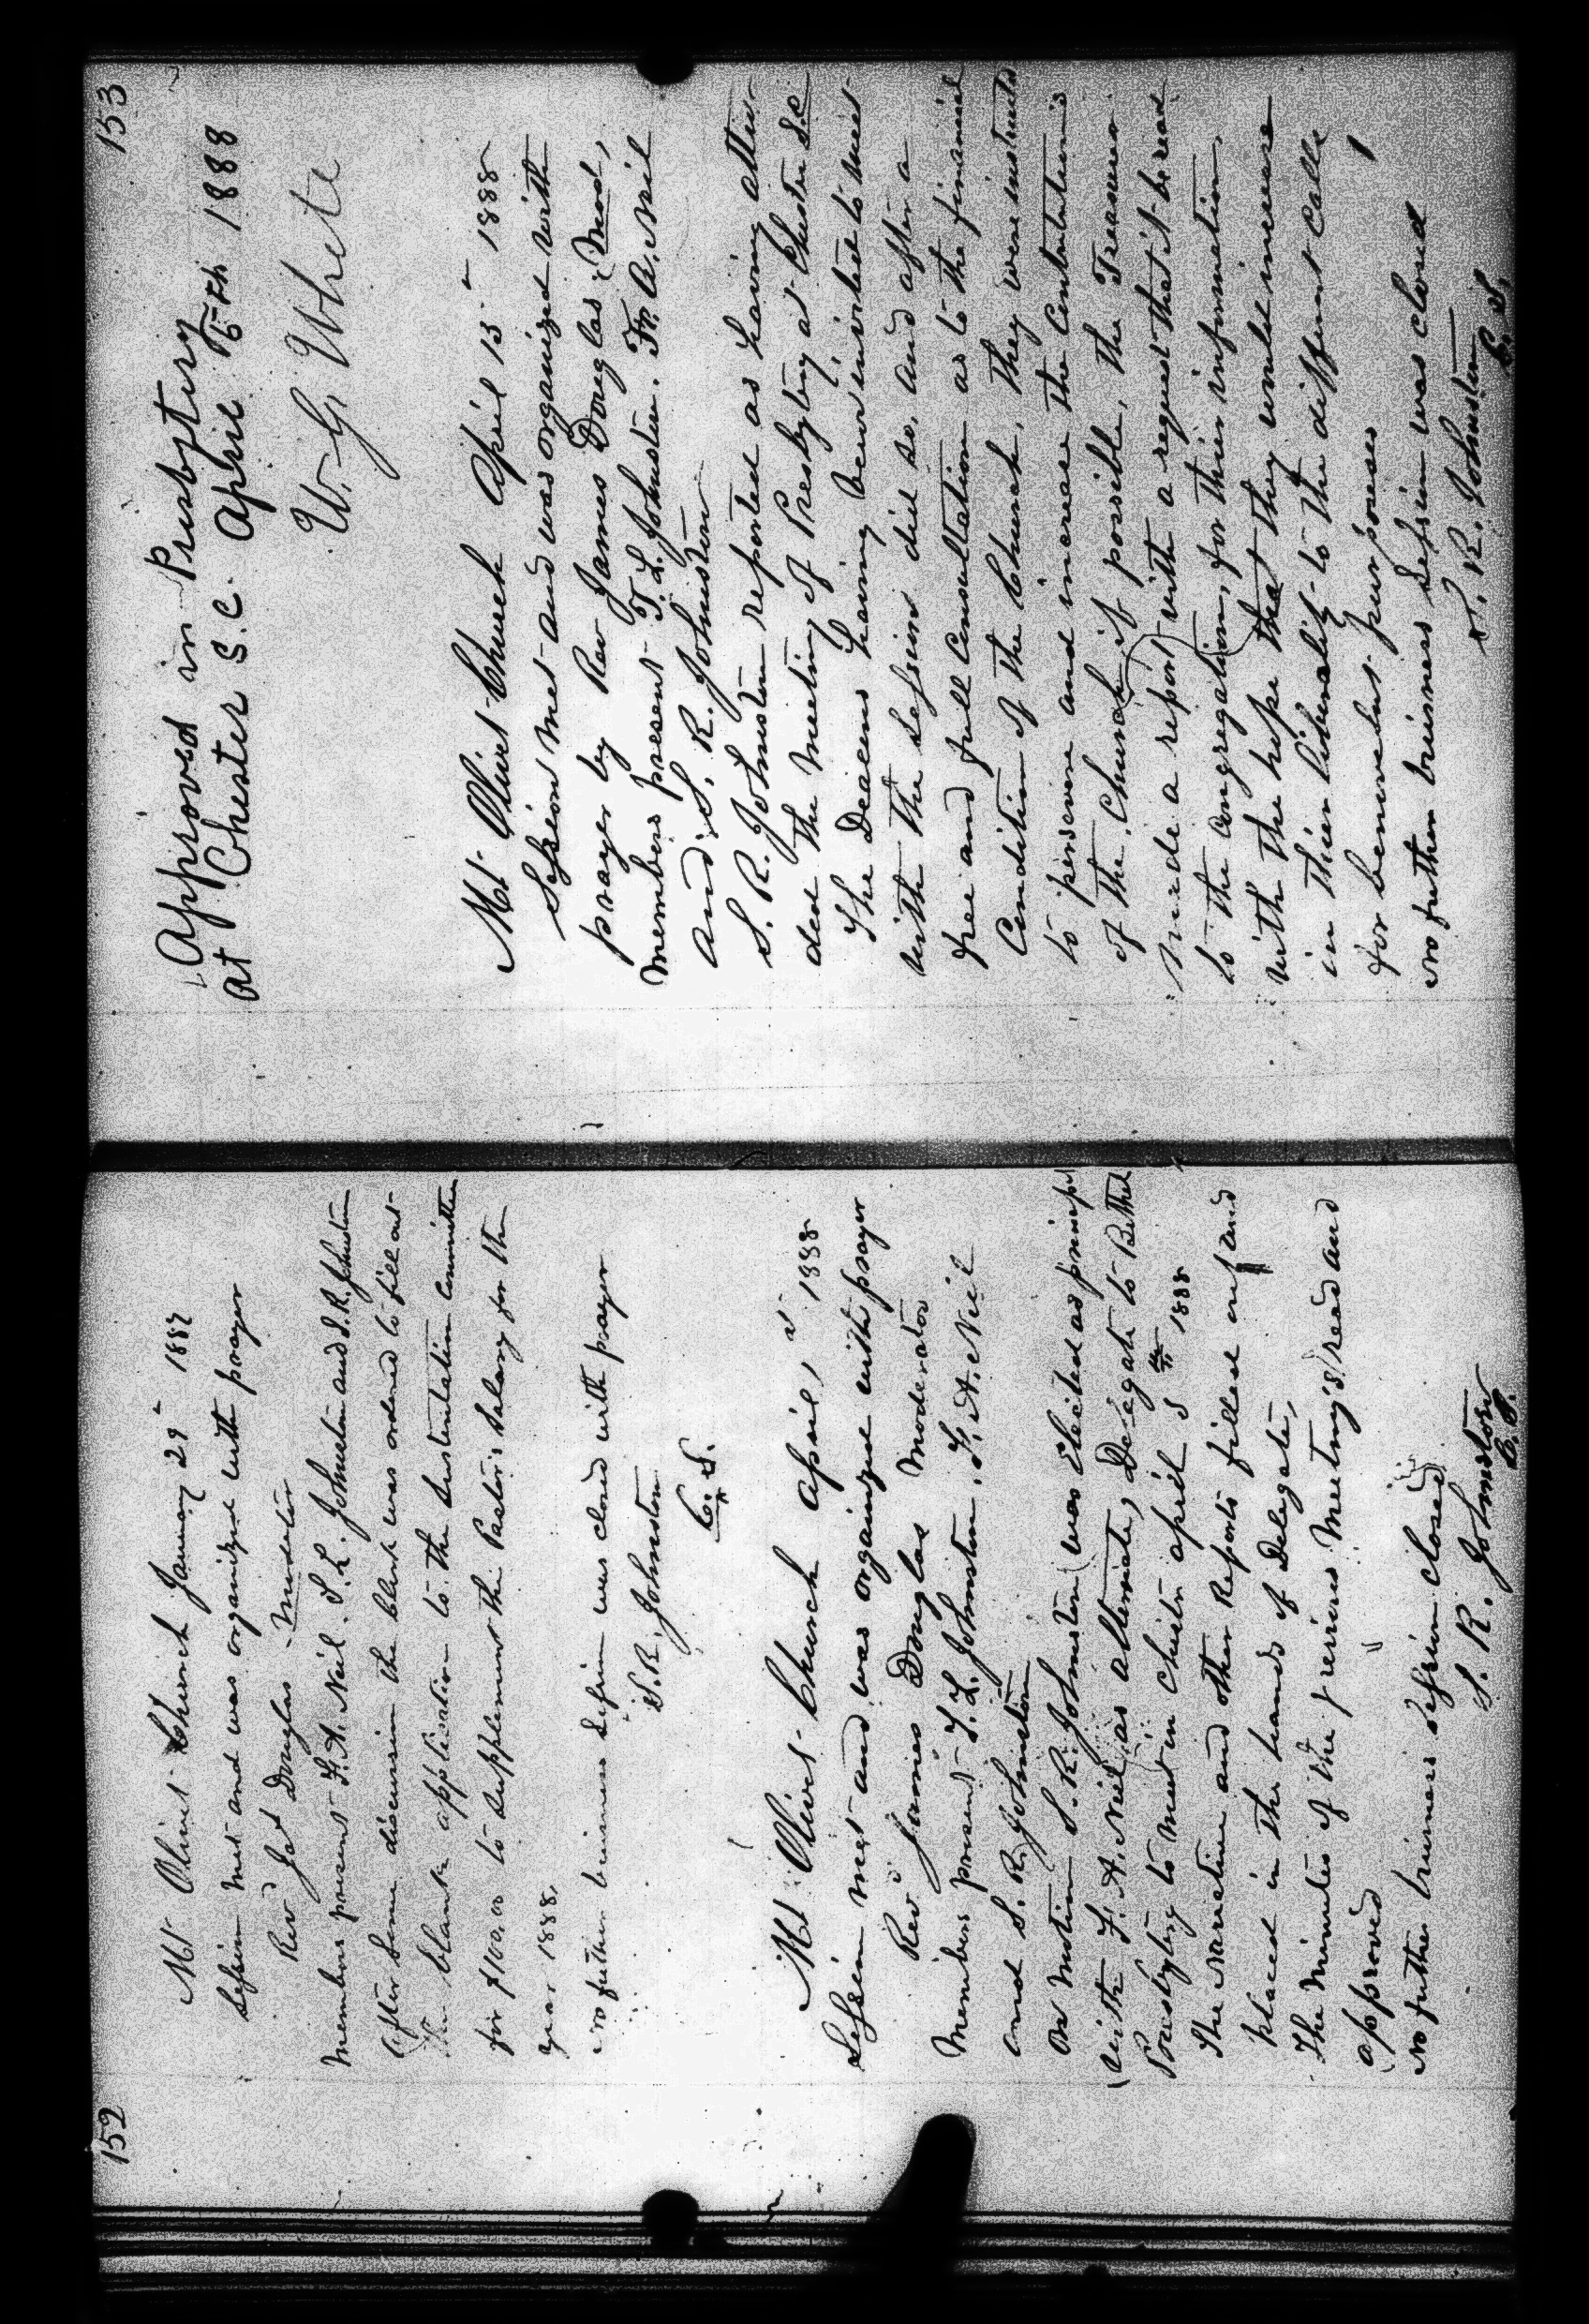 152
Mt Olivet Church January 29 1888
Session met and was organized with prayer
Rev Jas Douglas Moderator
Members present F. A. Neil T. L. Johnston and S. R. Johnston
After some discussion the Clerk was ordered to fill out
the blank application to the Sustentation Committee
for $100.00 to supplement the Pastors Salary for the
year 1888.
no futher business Session was closed with prayer
S. R. Johnston
C. S.
Mt Olivet Church April, 1888
Session met and was organized with prayer
Rev James Douglas Moderator
Members present T. L. Johnston, F. A. Neil
and S. R. Johnston
On Motion S. R. Johnston was Elected as principal
(with F. A. Neil as alternate, Delegate to Bethel
Presbytery to meet in Chester April 5th 1888
The Narrative and other Reports filled out and
placed in the hands of Delegate,
The Minutes of the previous Meeting's read and
approved
No futher business Session closed
S. R. Johnston
C. S.
153
Approved in Presbytery
at Chester S.C. April 6th 1888
W. G. White
Mt Olivet Church April 15 1888
Session met and was organized with
prayer by Rev James Douglas Mod,
Members present T. L. Johnston. F. A. Neil
and S. R. Johnston
S. R. Johnston reported as having atten-
ded the meeting of Presbytery at Chester S.C
The Deacons having been invited to meet
with the Session did so, and after a
free and full Consultation as to the financial
Condition of the Church, they were instructed
to persevere and increase the Contributions
of the Church if possible, the Treasurer
made a report with a request that it be read
to the Congregation, for their information,
with the hope that they would increase
in their liberality to the different Calls
for benevolent purposes
no futher business Session was closed
S. R. Johnston
C. S.